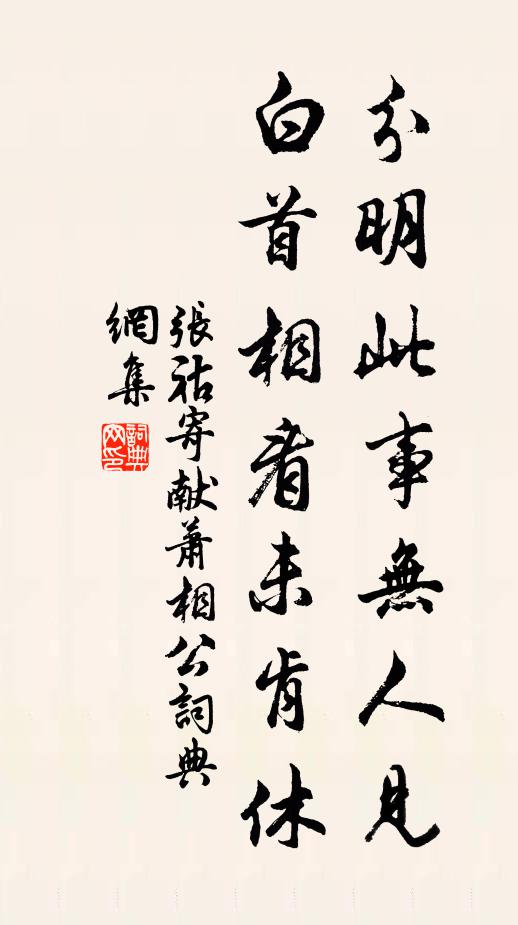 分明此事無人見
白首相看未肯休
張祜寄献蕭相公詞典
網集
詞典
網印